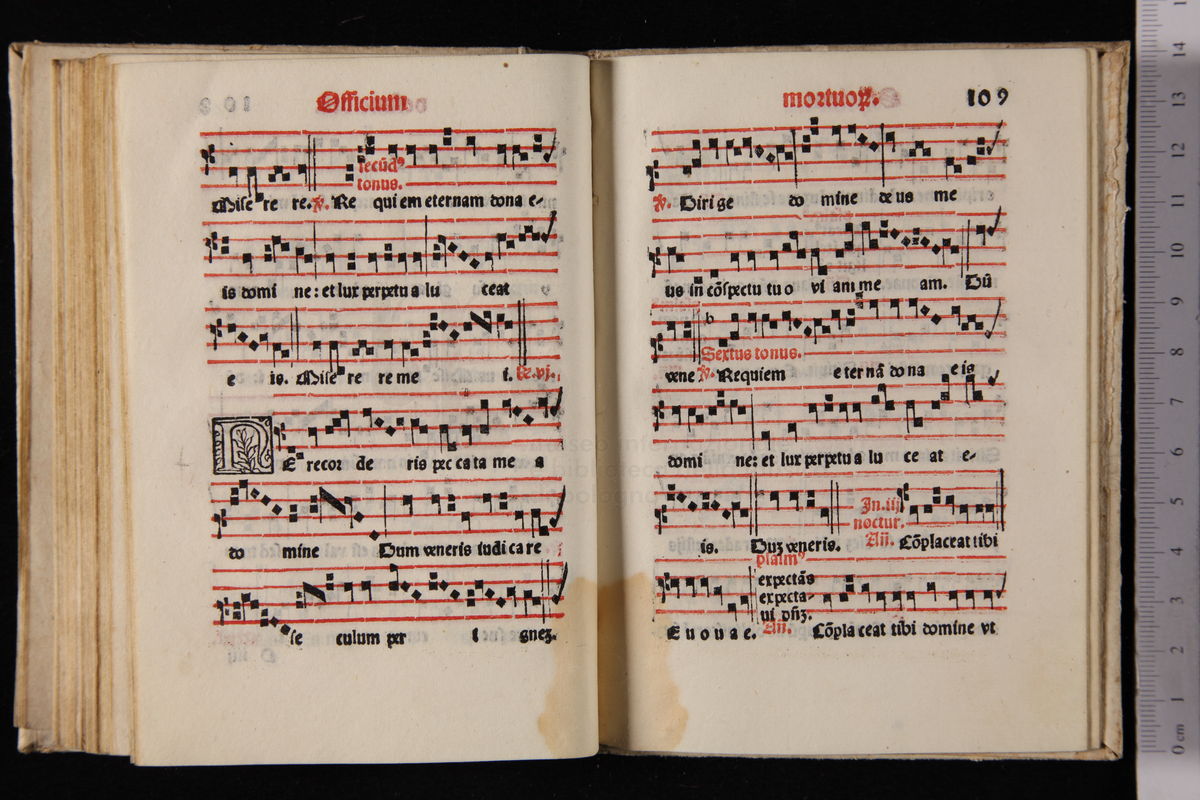 Officium
secūdꝰ
tonus.
Mise re re. ℣. Re qui em eternam dona e-
is domi ne: et lux perpetu a lu ceat
e is. Mise re re me i. Re. vj.
NE recor de ris pec ca ta me a
do mine Dum veneris iudi ca re
se culum per i gnez.
mortuoꝝ. 109
℣. Diri ge do mine de us me
us in cōspectu tu o vi am me am. Dū
Sextus tonus.
vene ℣. Requiem e ter nā do na e is
domi ne: et lux perpetu a lu ce at e-
is. Duz veneris.
In. iij
noctur.
Añ. Cōplaceat tibi
psalmꝰ
expectās
expecta-
ui dn̄z.
E u o u a e. Añ. Cōpla ceat tibi domine vt
0 cm 1 2 3 4 5 6 7 8 9 10 11 12 13 14